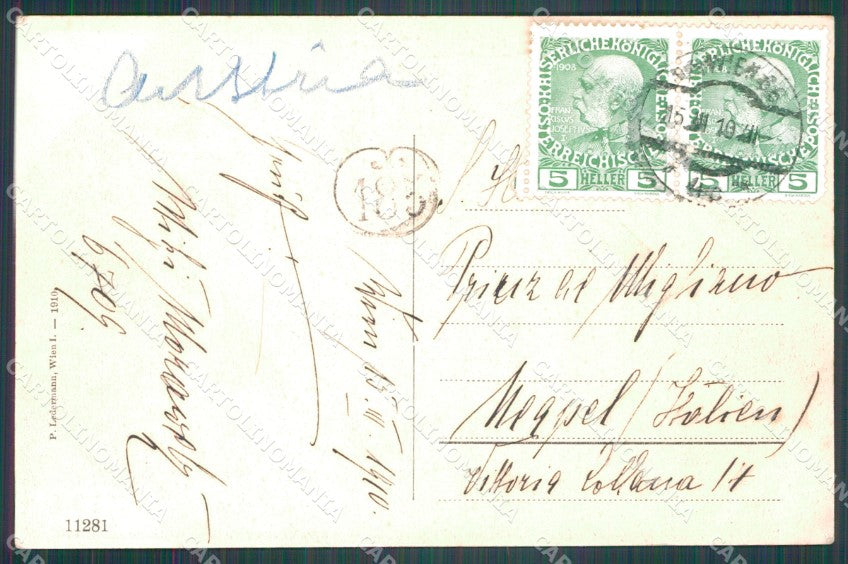 Austria
KAISERLICHE KÖNIGLICHE ÖSTERREICHISCHE POST
1908
FRANCISCUS JOSEPHUS I
5 HELLER 5
KAISERLICHE KÖNIGLICHE ÖSTERREICHISCHE POST
5 HELLER 5
15 III 10
185
S. H.
Prinz de Migliano
Neapel (Italien)
Vittoria Collana 14
Wien 15. III. 1910.
P. Ledermann, Wien I. — 1910
11281
CARTOLINOMANIA